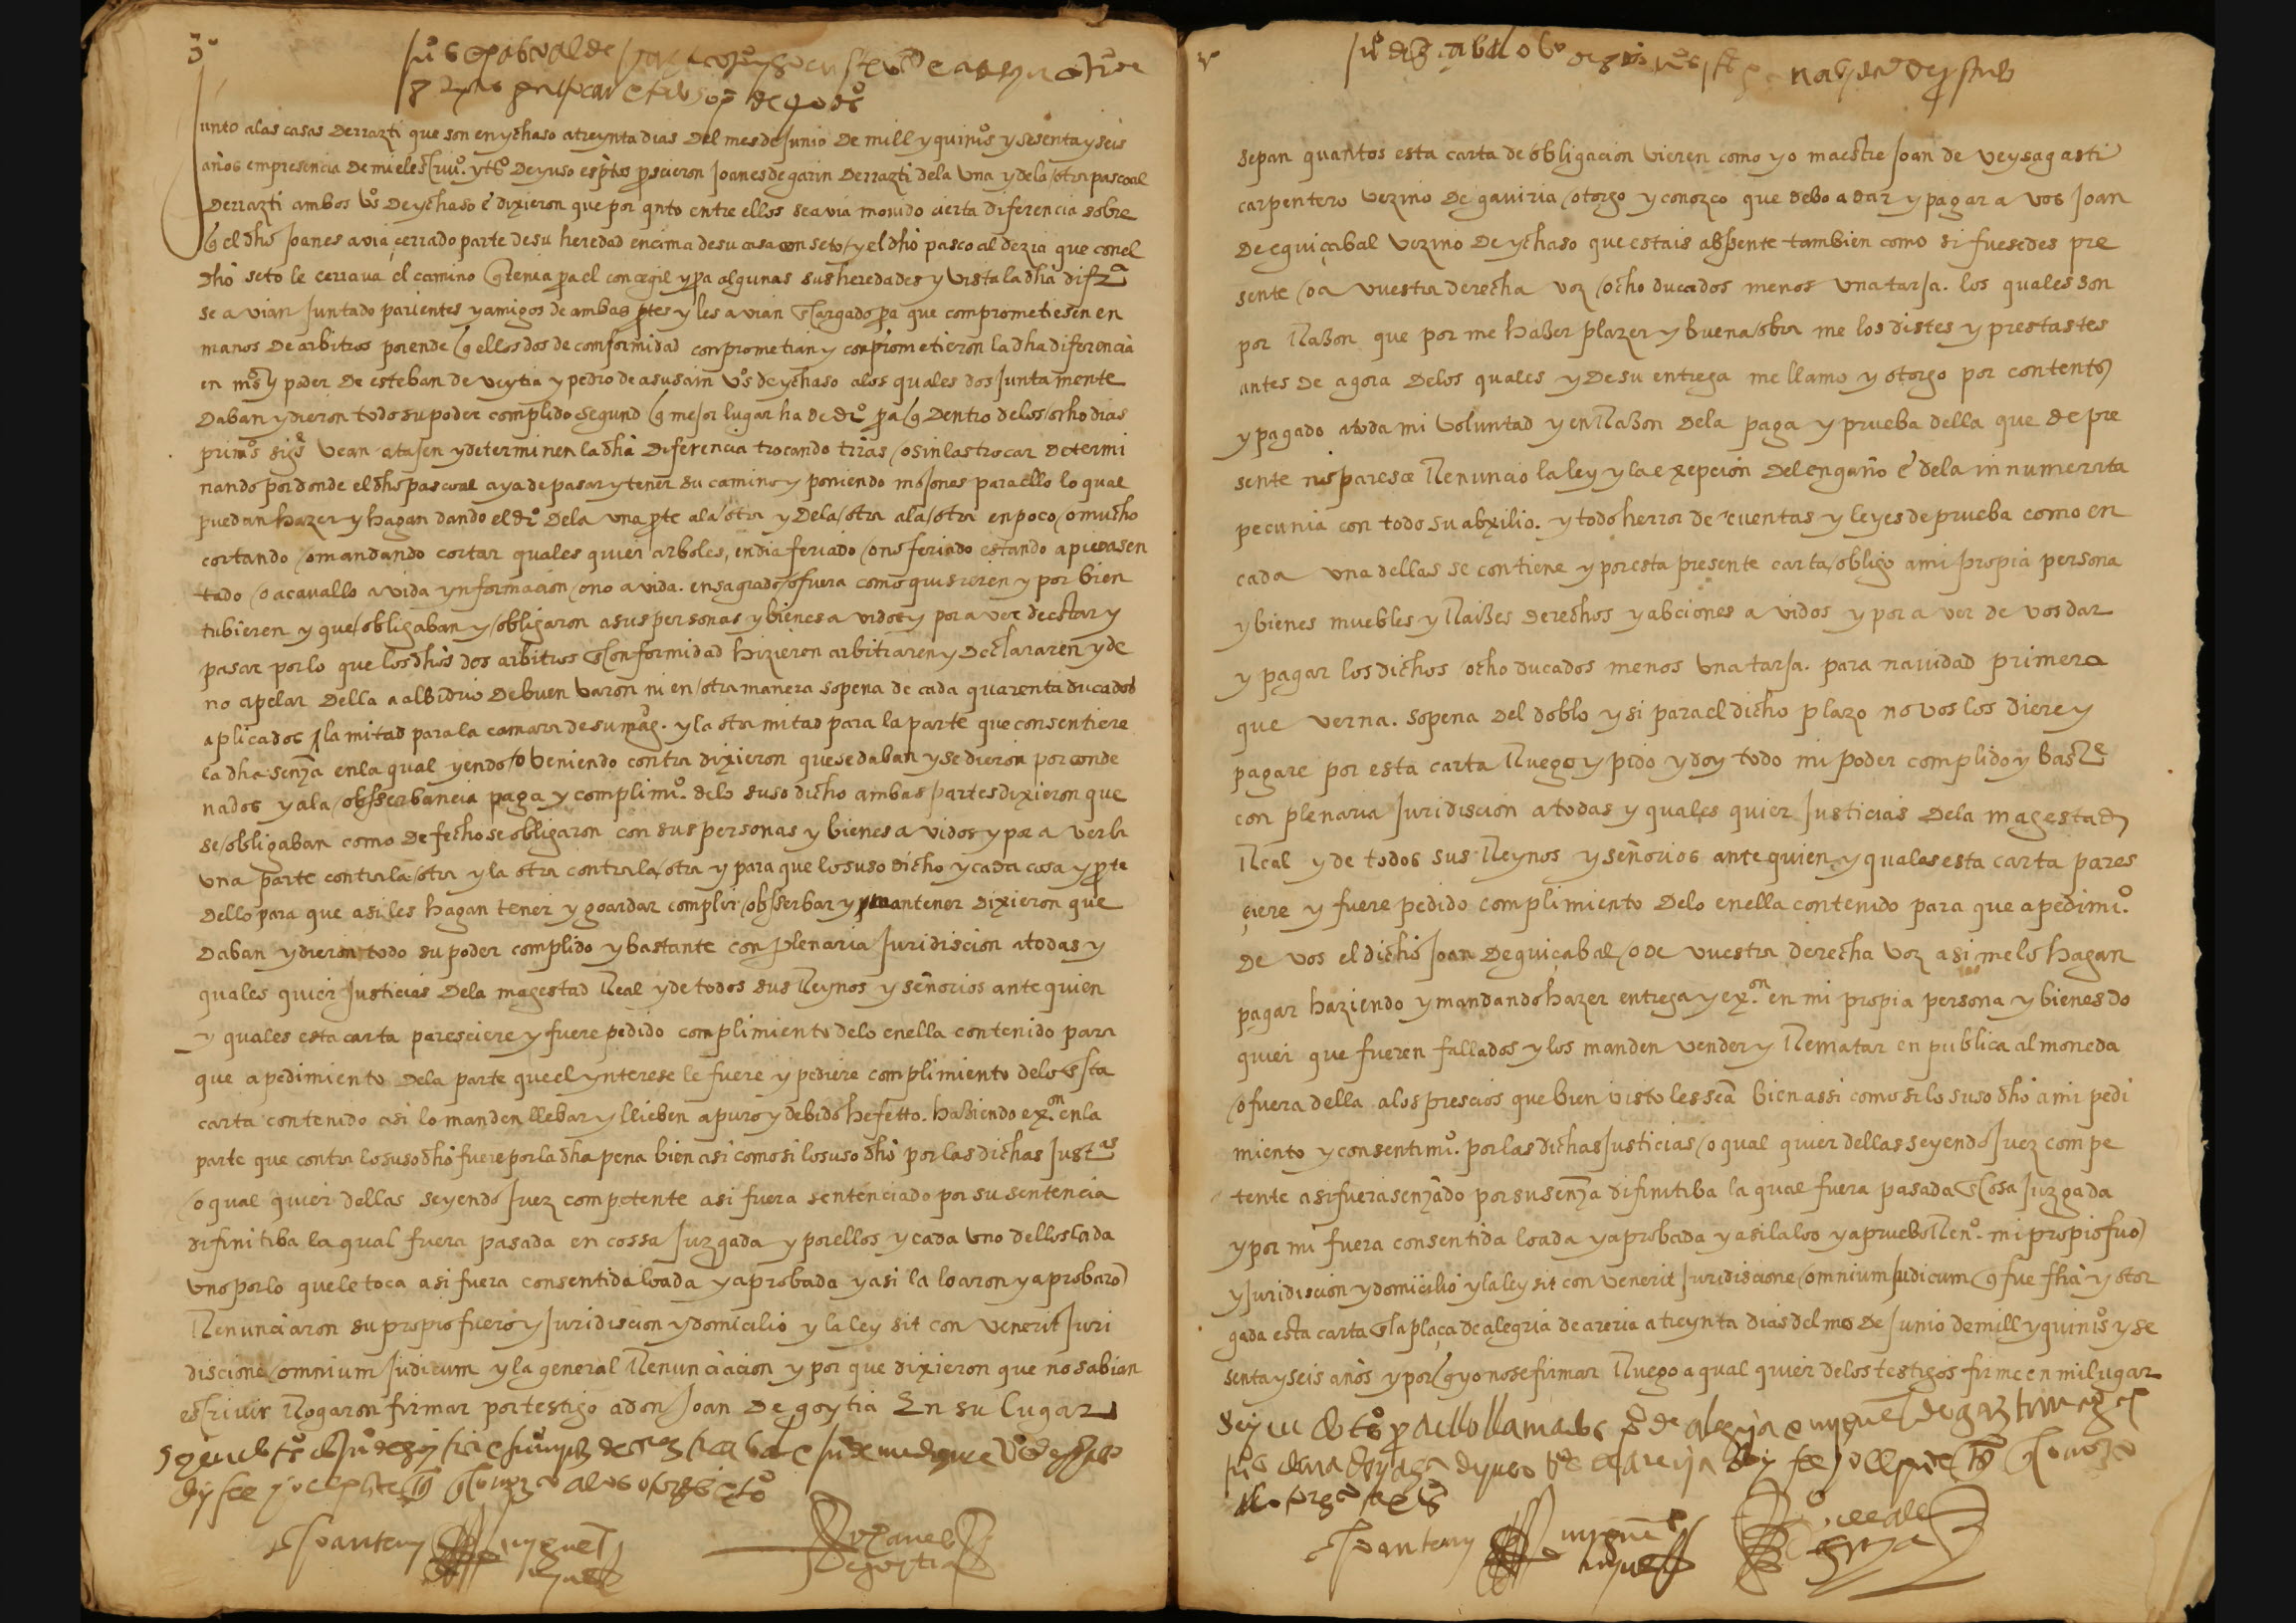 Junto alas casas Derrazti que son en ychaso a treynta dias Del mes de Junio De mill y quinios y sesenta y seis
años empresencia De mi el escriuo. y tos De yuso esptos parscieron Joanes de garin Derrazti dela vna y dela otra pascoal
Derrazti ambos vos De ychaso e dixieron que por qnto entre ellos se avia mouido cierta diferencia sobre
q el dho Joanes avia çerrado parte de su heredad encima de su casa con seto y el dho pascoal dezia que con el
dho seto le cerraua el camino q tenia pa el concegil y pa algunas sus heredades y vista la dha difza
se avian Juntado parientes y amigos de ambas ptes y les avian encargado pa que comprometiesen en
manos De arbitros por ende q ellos dos de comformidad conprometian y conprometieron la dha diferencia
en mos y poder De esteban de veytia y pedro de asusain vos de ychaso alos quales dos Juntamente
Daban y dieron todo su poder complido segund q mejor lugar ha de dro pa q Dentro delos ocho dias
primos sigs vean atajen y determinen la dha Diferencia trocando trras o sin las trocar Determi
nando por donde el dho pascoal aya de pasar y tener su camino y poniendo mojones para ello lo qual
puedan hazer y hagan dando el dro Dela vna pte ala otra y Dela otra ala otra en poco o mucho
cortando o mandando cortar quales quier arboles, en dia feriado o no feriado estando a pie o asen
tado o acauallo avida ynformacion o no avida. en sagrado o fuera como quisieren y por bien
tubieren y que obligaban y obligaron a sus personas y bienes avidos y por aver de estar y
pasar por lo que los dhos dos arbitros en conformidad hizieren arbitraren y Declararen y de
no apelar Della a albidrio De buen varon ni en otra manera so pena de cada quarenta ducados
aplicados la mitad para la camara de su mag. y la otra mitad para la parte que consentiere
la dha senza en la qual yendo o veniendo contra dixieron que se daban y se dieron por conde
nados y ala obsserbancia paga y complimio. delo suso dicho ambas partes dixieron que
se obligaban como De fecho se obligaron con sus personas y bienes avidos y por aver la
vna parte contra la otra y la otra contra la otra y para que lo suso dicho y cada cosa y pte
Dello para que asi les hagan tener y goardar complir obsserbar y mantener Dixieron que
Daban y dieron todo su poder complido y bastante con plenaria Juridiscion atodas y
quales quier Justicias Dela magestad Real y de todos sus Reynos y señorios ante quien
y quales esta carta paresciere y fuere pedido complimiento delo en ella contenido para
que a pedimiento Dela parte que el ynterese le fuere y pediere complimiento delo en esta
carta contenido asi lo manden llebar y llieben a puro y debido hefetto. haziendo exon. en la
parte que contra lo suso dho fuere por la dha pena bien asi como si lo suso dho por las dichas Justas
o qual quier dellas seyendo Juez competente asi fuera sentenciado por su sentencia
difinitiba la qual fuera pasada en cossa Juzgada y por ellos y cada vno dellos cada
vno por lo que le toca asi fuera consentida loada y aprobada y asi la loaron y aprobaron
Renunciaron su propio fuero y Juridiscion y domicilio y la ley sit con venerit Juri
discione omnium Judicum y la general Renunciacion y por que dixieron que no sabian
escriuir Rogaron firmar por testigo a don Joan De goytia En su lugar
doy fee
Joan
degoytia

sepan quantos esta carta de obligacion vieren como yo maestre Joan de veysagasti
carpentero vezino De gaviria otorgo y conozco que debo a dar y pagar a vos Joan
De eguiçabal vezino De ychaso que estais abssente tambien como si fuesedes pre
sente o a vuestra derecha voz ocho ducados menos vna tarja. los quales son
por Razon que por me hazer plazer y buena obra me los distes y prestastes
antes De agora Delos quales y De su entrega me llamo y otorgo por contento
y pagado a toda mi voluntad y en Razon Dela paga y prueba della que de pre
sente nos paresce Renuncio la ley y la exepcion Del engaño e dela innumerata
pecunia con todo su abxilio. y todo herror de cuentas y leyes de prueba como en
cada vna dellas se contiene y por esta presente carta obligo a mi propia persona
y bienes muebles y Raizes Derechos y abciones avidos y por aver de vos dar
y pagar los dichos ocho ducados menos vna tarja. para nauidad primera
que verna. sopena Del doblo y si para el dicho plazo no vos los diere y
pagare por esta carta Ruego y pido y doy todo mi poder complido y baste
con plenaria Juridiscion atodas y quales quier Justicias Dela magestad
Real y de todos sus Reynos y señorios ante quien y quales esta carta pares
çiere y fuere pedido complimiento Delo en ella contenido para que a pedimio.
De vos el dicho Joan Deguiçabal o de vuestra derecha voz asi me lo hagan
pagar haziendo y mandando hazer entrega y exon. en mi propia persona y bienes do
quier que fueren fallados y los manden vender y Rematar en publica almoneda
o fuera della alos prescios que bien visto les sea bien assi como si lo suso dho a mi pedi
miento y consentimio. por las dichas Justicias o qual quier dellas seyendo Juez compe
tente asi fuera senzado por su senza difinitiba la qual fuera pasada en cosa Juzgada
y por mi fuera consentida loada y aprobada y asi la loo y apruebo Reno. mi propio fuo
y Juridiscion y domicilio y la ley sit con venerit Juridiscione omnium Judicum q fue fha y otor
gada esta carta en la plaça de alegria de areria a treynta dias del mes De Junio de mill y quinios y se
senta y seis años y por q yo no se firmar Ruego a qual quier delos testigos firme en mi lugar